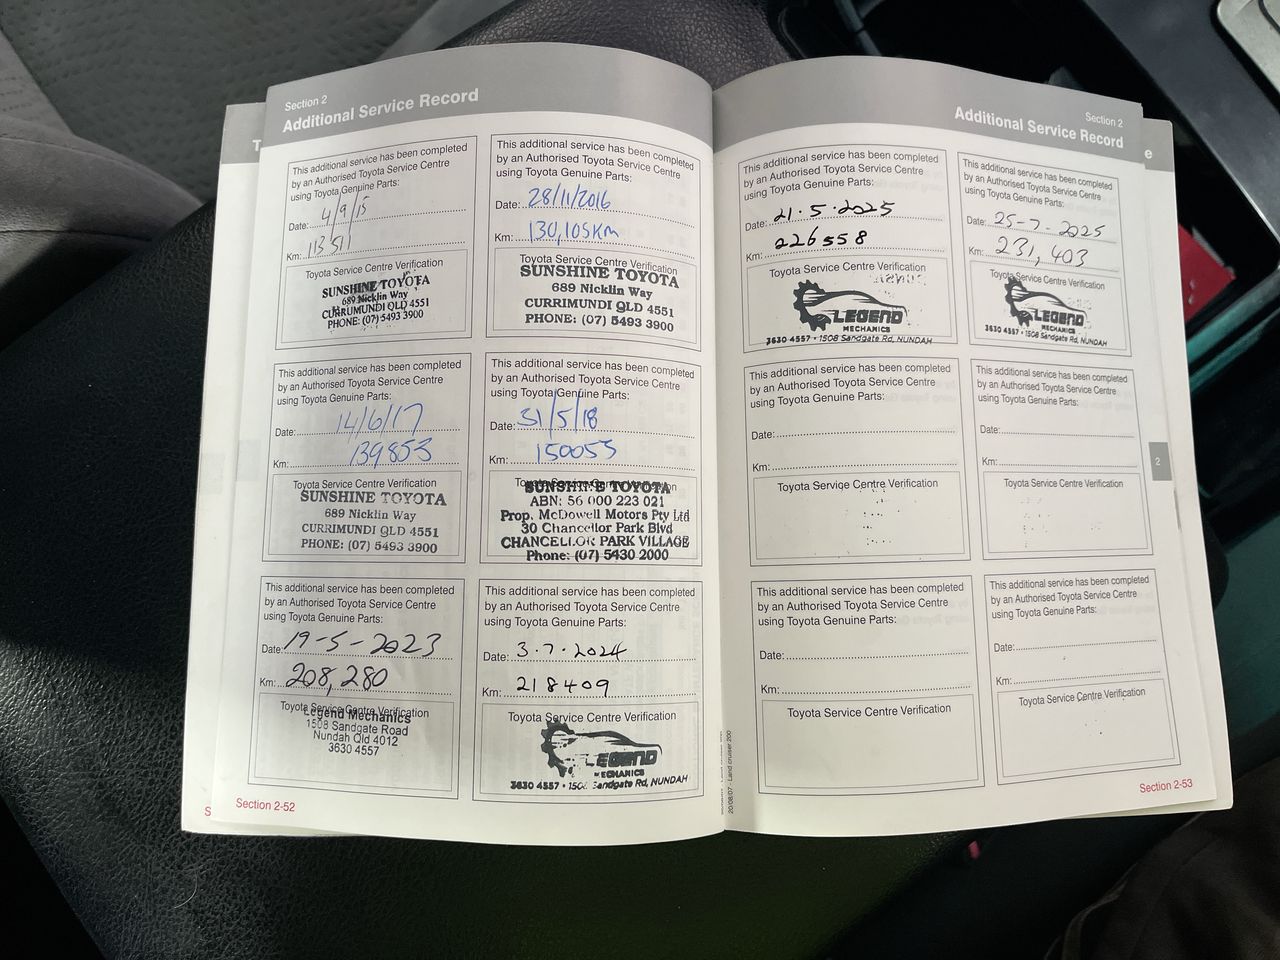 Section 2
Additional Service Record
This additional service has been completed
by an Authorised Toyota Service Centre
using Toyota Genuine Parts:
Date: 4/9/15
Km: 113511
Toyota Service Centre Verification
SUNSHINE TOYOTA
689 Nicklin Way
CURRIMUNDI QLD 4551
PHONE: (07) 5493 3900
This additional service has been completed
by an Authorised Toyota Service Centre
using Toyota Genuine Parts:
Date: 28/11/2016
Km: 130,105Km
Toyota Service Centre Verification
SUNSHINE TOYOTA
689 Nicklin Way
CURRIMUNDI QLD 4551
PHONE: (07) 5493 3900
This additional service has been completed
by an Authorised Toyota Service Centre
using Toyota Genuine Parts:
Date: 14/6/17
Km: 139853
Toyota Service Centre Verification
SUNSHINE TOYOTA
689 Nicklin Way
CURRIMUNDI QLD 4551
PHONE: (07) 5493 3900
This additional service has been completed
by an Authorised Toyota Service Centre
using Toyota Genuine Parts:
Date: 31/5/18
Km: 150055
Toyota Service Centre Verification
SUNSHINE TOYOTA
ABN: 56 000 223 021
Prop. McDowell Motors Pty Ltd
30 Chancellor Park Blvd
CHANCELLOR PARK VILLAGE
Phone: (07) 5430 2000
This additional service has been completed
by an Authorised Toyota Service Centre
using Toyota Genuine Parts:
Date: 19-5-2023
Km: 208,280
Toyota Service Centre Verification
Legend Mechanics
1508 Sandgate Road
Nundah Qld 4012
3630 4557
This additional service has been completed
by an Authorised Toyota Service Centre
using Toyota Genuine Parts:
Date: 3.7.2024
Km: 218409
Toyota Service Centre Verification
LEGEND
MECHANICS
3630 4557 • 1508 Sandgate Rd, NUNDAH
Section 2-52
20/08/07 - Land cruiser 200
Section 2
Additional Service Record
This additional service has been completed
by an Authorised Toyota Service Centre
using Toyota Genuine Parts:
Date: 21.5.2025
Km: 226558
Toyota Service Centre Verification
LEGEND
MECHANICS
3630 4557 • 1508 Sandgate Rd, NUNDAH
This additional service has been completed
by an Authorised Toyota Service Centre
using Toyota Genuine Parts:
Date: 25-7-2025
Km: 231,403
Toyota Service Centre Verification
LEGEND
MECHANICS
3630 4557 • 1508 Sandgate Rd, NUNDAH
This additional service has been completed
by an Authorised Toyota Service Centre
using Toyota Genuine Parts:
Date:
Km:
Toyota Service Centre Verification
This additional service has been completed
by an Authorised Toyota Service Centre
using Toyota Genuine Parts:
Date:
Km:
Toyota Service Centre Verification
2
This additional service has been completed
by an Authorised Toyota Service Centre
using Toyota Genuine Parts:
Date:
Km:
Toyota Service Centre Verification
This additional service has been completed
by an Authorised Toyota Service Centre
using Toyota Genuine Parts:
Date:
Km:
Toyota Service Centre Verification
Section 2-53